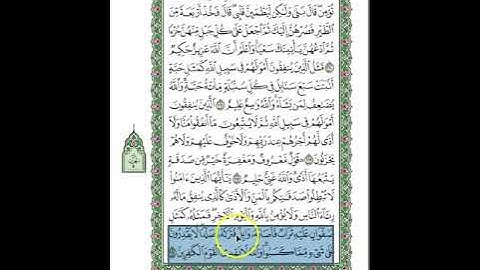 تُؤْمِنۖ قَالَ بَلَىٰ وَلَٰكِن لِّيَطْمَئِنَّ قَلْبِيۖ قَالَ فَخُذْ أَرْبَعَةً مِّنَ
ٱلطَّيْرِ فَصُرْهُنَّ إِلَيْكَ ثُمَّ ٱجْعَلْ عَلَىٰ كُلِّ جَبَلٍ مِّنْهُنَّ جُزْءًا
ثُمَّ ٱدْعُهُنَّ يَأْتِينَكَ سَعْيًاۚ وَٱعْلَمْ أَنَّ ٱللَّهَ عَزِيزٌ حَكِيمٌ
مَّثَلُ ٱلَّذِينَ يُنفِقُونَ أَمْوَٰلَهُمْ فِي سَبِيلِ ٱللَّهِ كَمَثَلِ حَبَّةٍ
أَنۢبَتَتْ سَبْعَ سَنَابِلَ فِي كُلِّ سُنۢبُلَةٍ مِّا۟ئَةُ حَبَّةٍۗ وَٱللَّهُ
يُضَٰعِفُ لِمَن يَشَآءُۗ وَٱللَّهُ وَٰسِعٌ عَلِيمٌ ٱلَّذِينَ يُنفِقُونَ
أَمْوَٰلَهُمْ فِي سَبِيلِ ٱللَّهِ ثُمَّ لَا يُتْبِعُونَ مَآ أَنفَقُوا۟ مَنًّا وَلَآ
أَذًىۙ لَّهُمْ أَجْرُهُمْ عِندَ رَبِّهِمْ وَلَا خَوْفٌ عَلَيْهِمْ وَلَا هُمْ
يَحْزَنُونَ قَوْلٌ مَّعْرُوفٌ وَمَغْفِرَةٌ خَيْرٌ مِّن صَدَقَةٍ
يَتْبَعُهَآ أَذًىۗ وَٱللَّهُ غَنِيٌّ حَلِيمٌ يَٰٓأَيُّهَا ٱلَّذِينَ ءَامَنُوا۟
لَا تُبْطِلُوا۟ صَدَقَٰتِكُم بِٱلْمَنِّ وَٱلْأَذَىٰ كَٱلَّذِي يُنفِقُ مَالَهُۥ
رِئَآءَ ٱلنَّاسِ وَلَا يُؤْمِنُ بِٱللَّهِ وَٱلْيَوْمِ ٱلْءَاخِرِۖ فَمَثَلُهُۥ كَمَثَلِ
صَفْوَانٍ عَلَيْهِ تُرَابٌ فَأَصَابَهُۥ وَابِلٌ فَتَرَكَهُۥ صَلْدًاۖ لَّا يَقْدِرُونَ
عَلَىٰ شَيْءٍ مِّمَّا كَسَبُوا۟ۗ وَٱللَّهُ لَا يَهْدِي ٱلْقَوْمَ ٱلْكَٰفِرِينَ